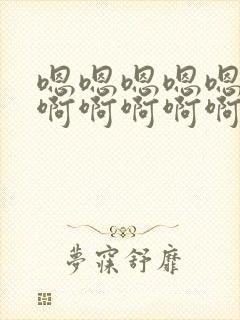 嗯嗯嗯嗯嗯
啊啊啊啊啊
夢寐舒靡